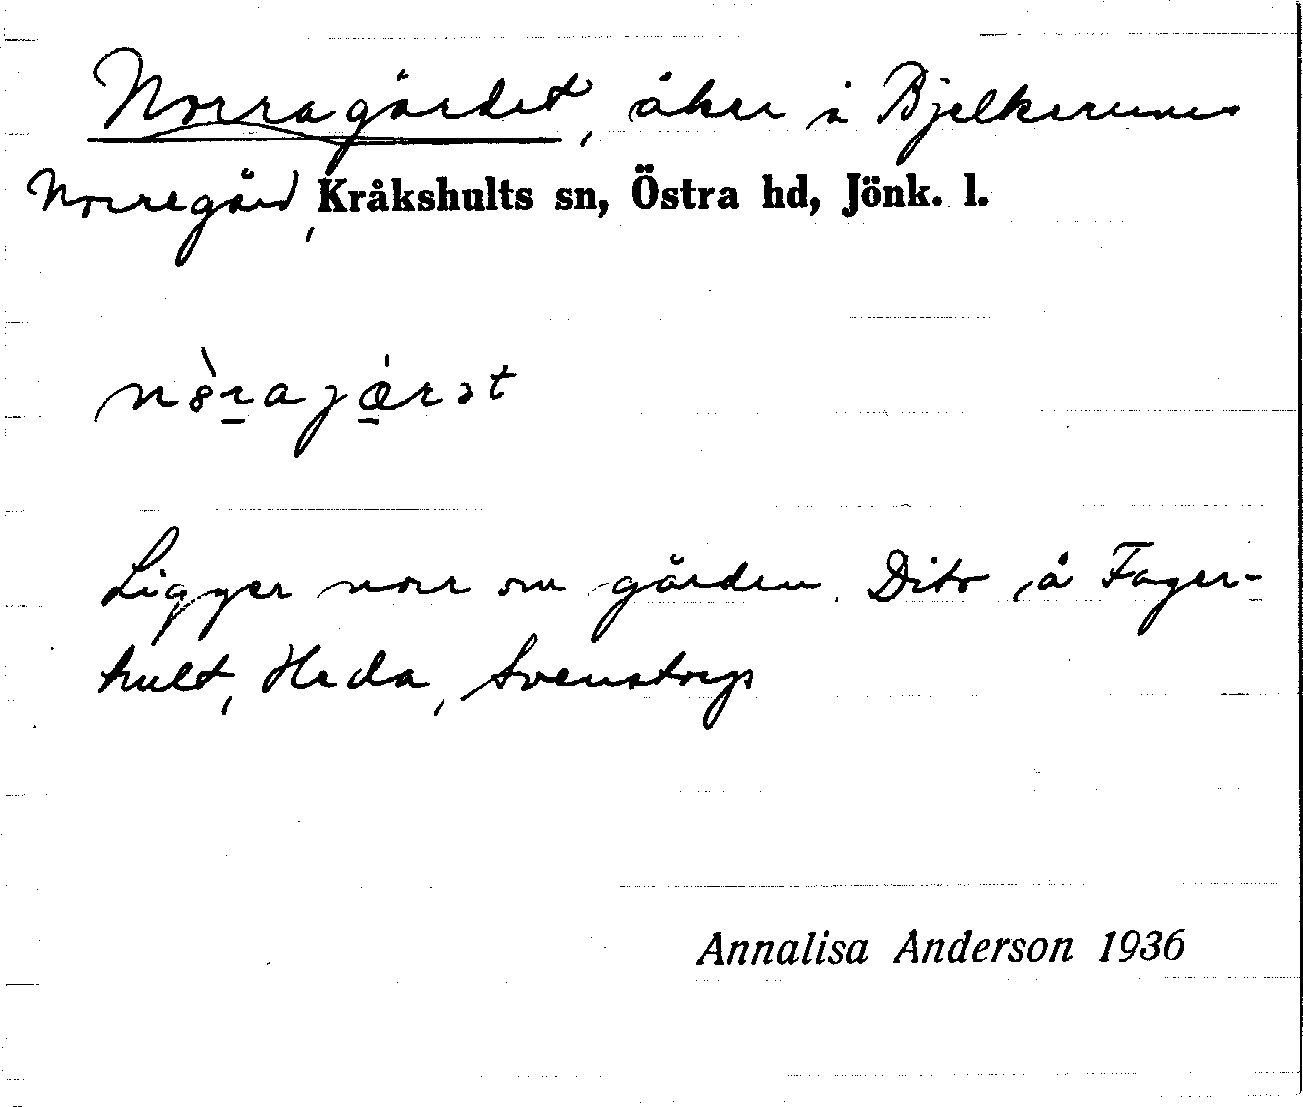 Norragärdet, åker å Bjelkerums
Norregård, Kråkshults sn, Östra hd, Jönk. l.
n8̀ṟajǽ̱rət
Ligger norr om gården. Dito å Fager-
hult, Heda, Svenstorp
Annalisa Anderson 1936